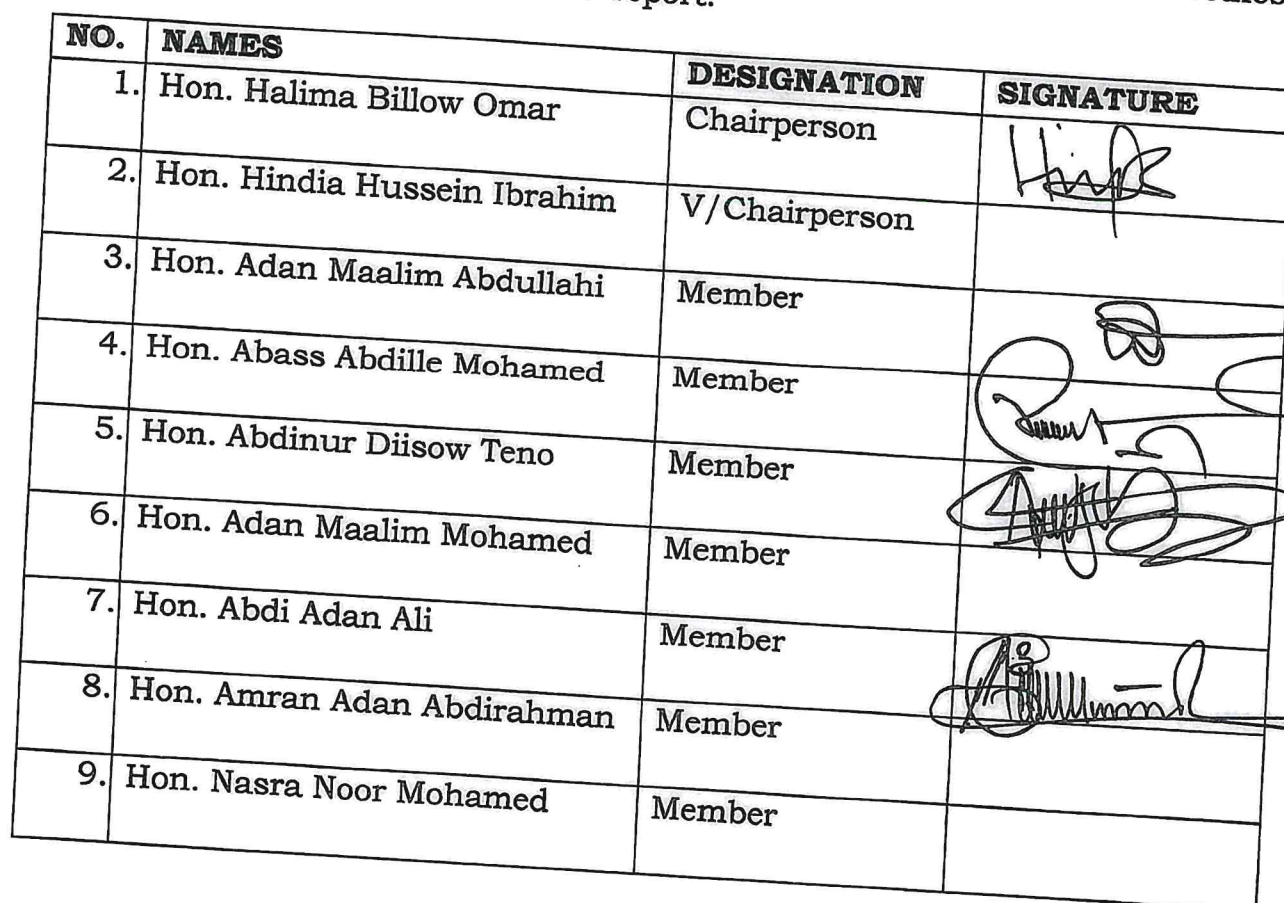 report.
NO. NAMES DESIGNATION SIGNATURE
1. Hon. Halima Billow Omar Chairperson
2. Hon. Hindia Hussein Ibrahim V/Chairperson
3. Hon. Adan Maalim Abdullahi Member
4. Hon. Abass Abdille Mohamed Member
5. Hon. Abdinur Diisow Teno Member
6. Hon. Adan Maalim Mohamed Member
7. Hon. Abdi Adan Ali Member
8. Hon. Amran Adan Abdirahman Member
9. Hon. Nasra Noor Mohamed Member